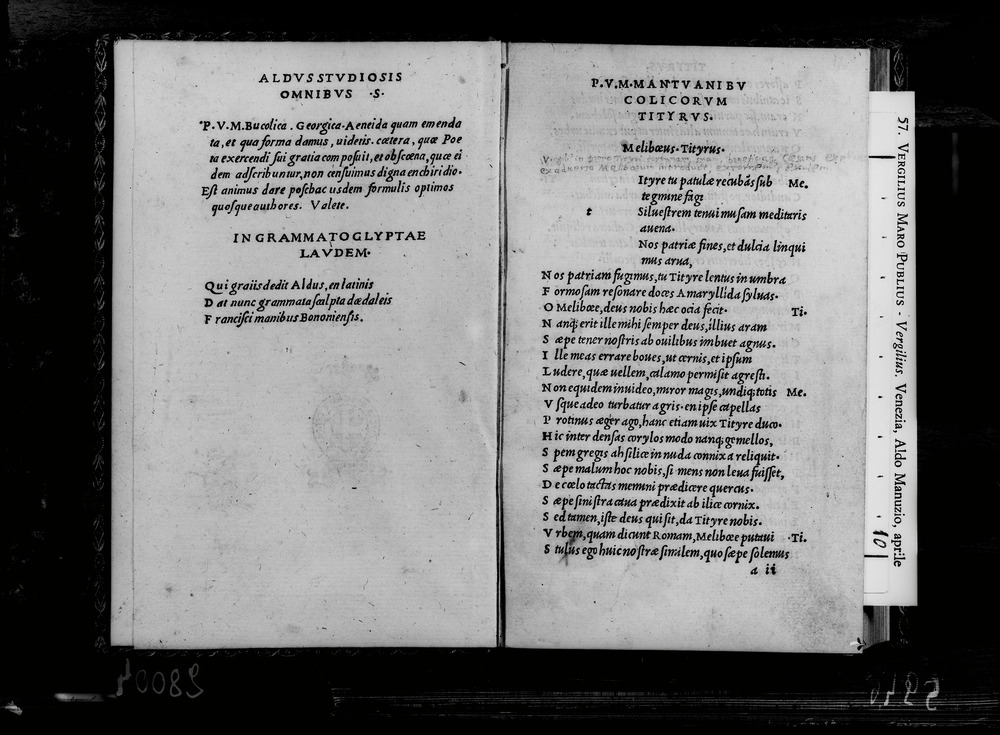 ALDVS STVDIOSIS
OMNIBVS ·S·
P.V.M. Bucolica. Georgica. Aeneida quam emenda
ta, et qua forma damus, uidetis. cætera, quæ Poe
ta exercendi sui gratia composuit, et obscœna, quæ ei
dem adscribuntur, non censuimus digna enchiridio.
Est animus dare posthac usdem formulis optimos
quosque authores. Valete.
IN GRAMMATOGLYPTAE
LAVDEM.
Qui graiis dedit Aldus, en latinis
Dat nunc grammata scalpta dædaleis
Francisci manibus Bononiensis.
P.V.M. MANTVANI BV
COLICORVM
TITYRVS.
Melibœus. Tityrus.
Ityre tu patulæ recubãs sub Me.
tegmine fagi
t Siluestrem tenui musam meditaris
auena.
Nos patriæ fines, et dulcia linqui
mus arua,
Nos patriam fugimus, tu Tityre lentus in umbra
Formosam resonare doces Amaryllida syluas.
O Melibœe, deus nobis hæc ocia fecit. Ti.
Nanq; erit ille mihi semper deus, illius aram
Sæpe tener nostris ab ouilibus imbuet agnus.
Ille meas errare boues, ut cernis, et ipsum
Ludere, quæ uellem, calamo permisit agresti.
Non equidem inuideo, miror magis, undiq; totis Me.
Vsque adeo turbatur agris. en ipse capellas
Protinus æger ago, hanc etiam uix Tityre duco.
Hic inter densas corylos modo nanq; gemellos,
Spem gregis ah silice in nuda connixa reliquit.
Sæpe malum hoc nobis, si mens non leua fuisset,
De cœlo tactas memini prædicere quercus.
Sæpe sinistra caua prædixit ab ilice cornix.
Sed tamen, iste deus qui sit, da Tityre nobis.
Vrbem, quam dicunt Romam, Melibœe putaui .Ti.
Stultus ego huic nostræ similem, quo sæpe solemus
a ii
57. VERGILIUS MARO PUBLIUS - Vergilius, Venezia, Aldo Manuzio, aprile
10
28004